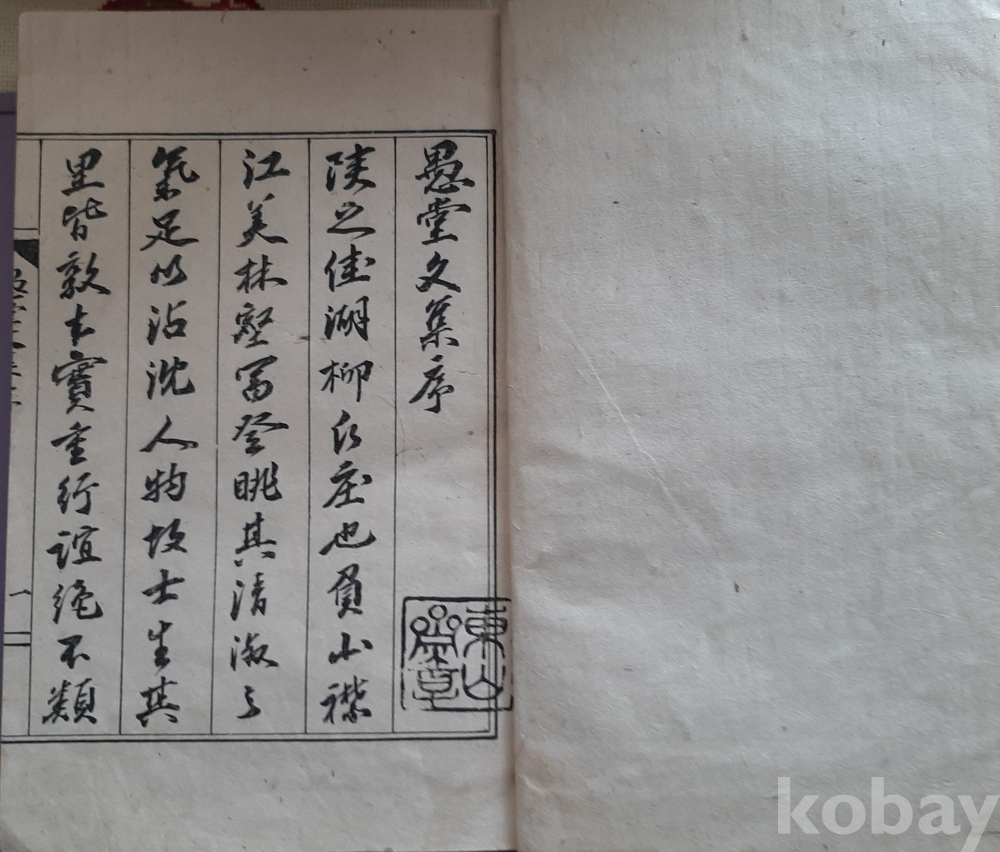 愚堂文集序
陜之佳湖柳氏庄也負山襟
江美林壑富登眺其清淑之
氣足以沾沈人物故士生其
里皆敦本實重行誼絶不類
一
東山
kobay